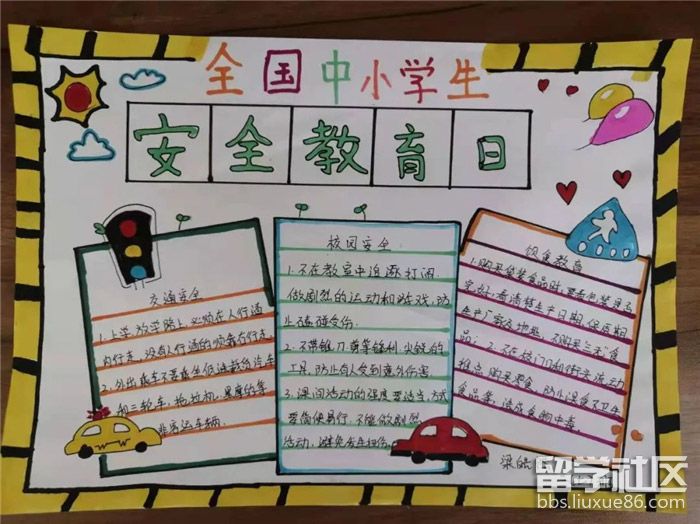 全国中小学生
安全教育日
交通安全
1.上学、放学路上,必须在人行道
内行走,没有人行道的须靠右行走
2.外出乘车不要乘坐低速载货汽车
和三轮车、拖拉机、黑摩的等
非客运车辆.
校园安全
1.不在教室中追逐打闹
做剧烈的运动和游戏,防
止磕碰受伤.
2.不带锥、刀、剪等锋利、尖锐的
工具,防止有人受到意外伤害
3.课间活动的强度要适当,方式
要简便易行,不做剧烈
活动,避免发生扭伤
饮食教育
1.购买袋装食品时,要看包装是否
完好,看清楚生产日期、保质期
生产厂家及地址,不购买“三无”食
品; 2.不在校门口和街头流动
摊点购买零食,防止误食不卫生
食品等,造成食物中毒.
梁皓
留学社区
bbs.liuxue86.com